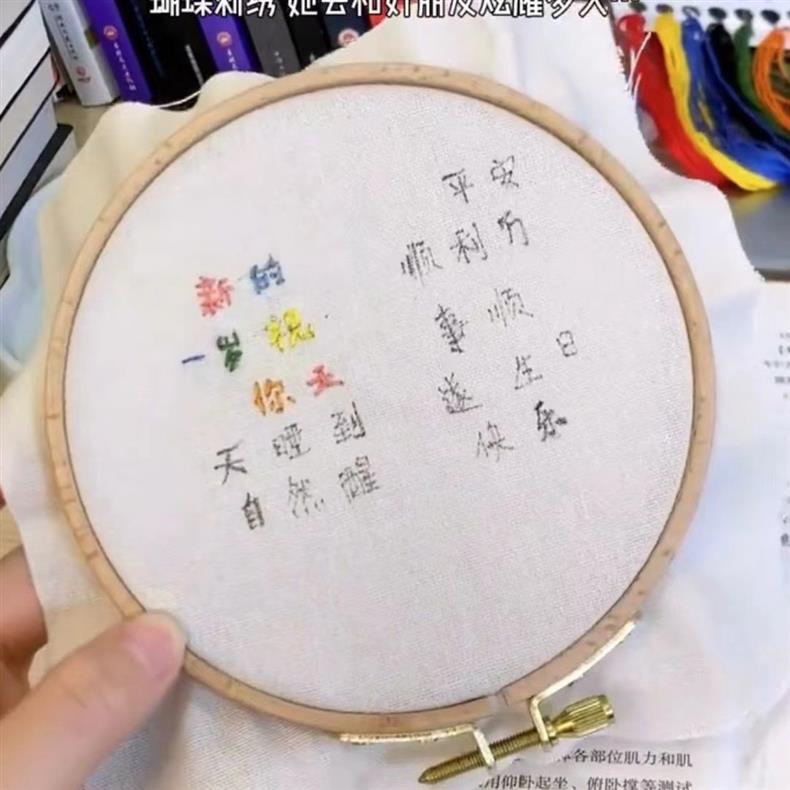 蝴蝶刺绣 她会和好朋友炫耀多久
新的
一岁祝
你天
天睡到
自然醒
平安
顺利万
事顺
遂生日
快乐
各部位肌力和肌
用仰卧起坐、俯卧撑等测试